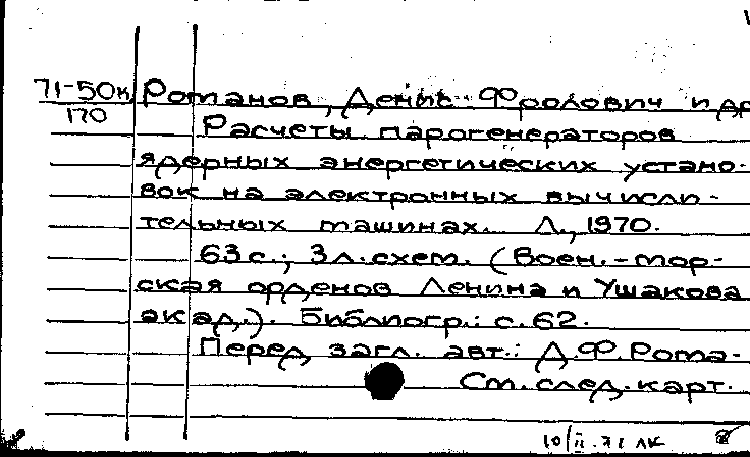 71-50к Романов, Денис Фролович и др
170
Расчеты парогенераторов
ядерных энергетических устано-
вок на электронных вычисли-
тельных машинах. Л., 1970.
63 с.; 3 л. схем. (Воен.-мор-
ская орденов Ленина и Ушакова
акад.). Библиогр.: с. 62.
Перед загл. авт.: Д.Ф. Рома-
См. след. карт.
10/II.71 ЛК